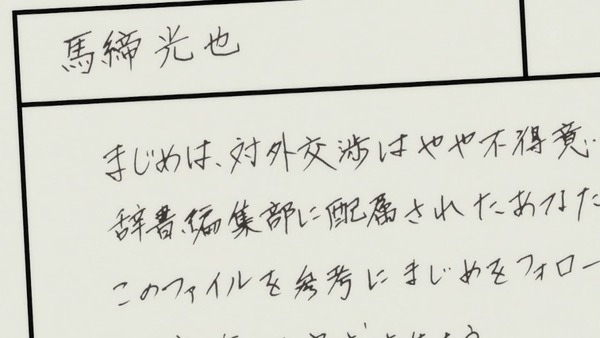 馬締光也
まじめは、対外交渉はやや不得意…
辞書編集部に配属されたあなた
このファイルを参考にまじめをフォロー